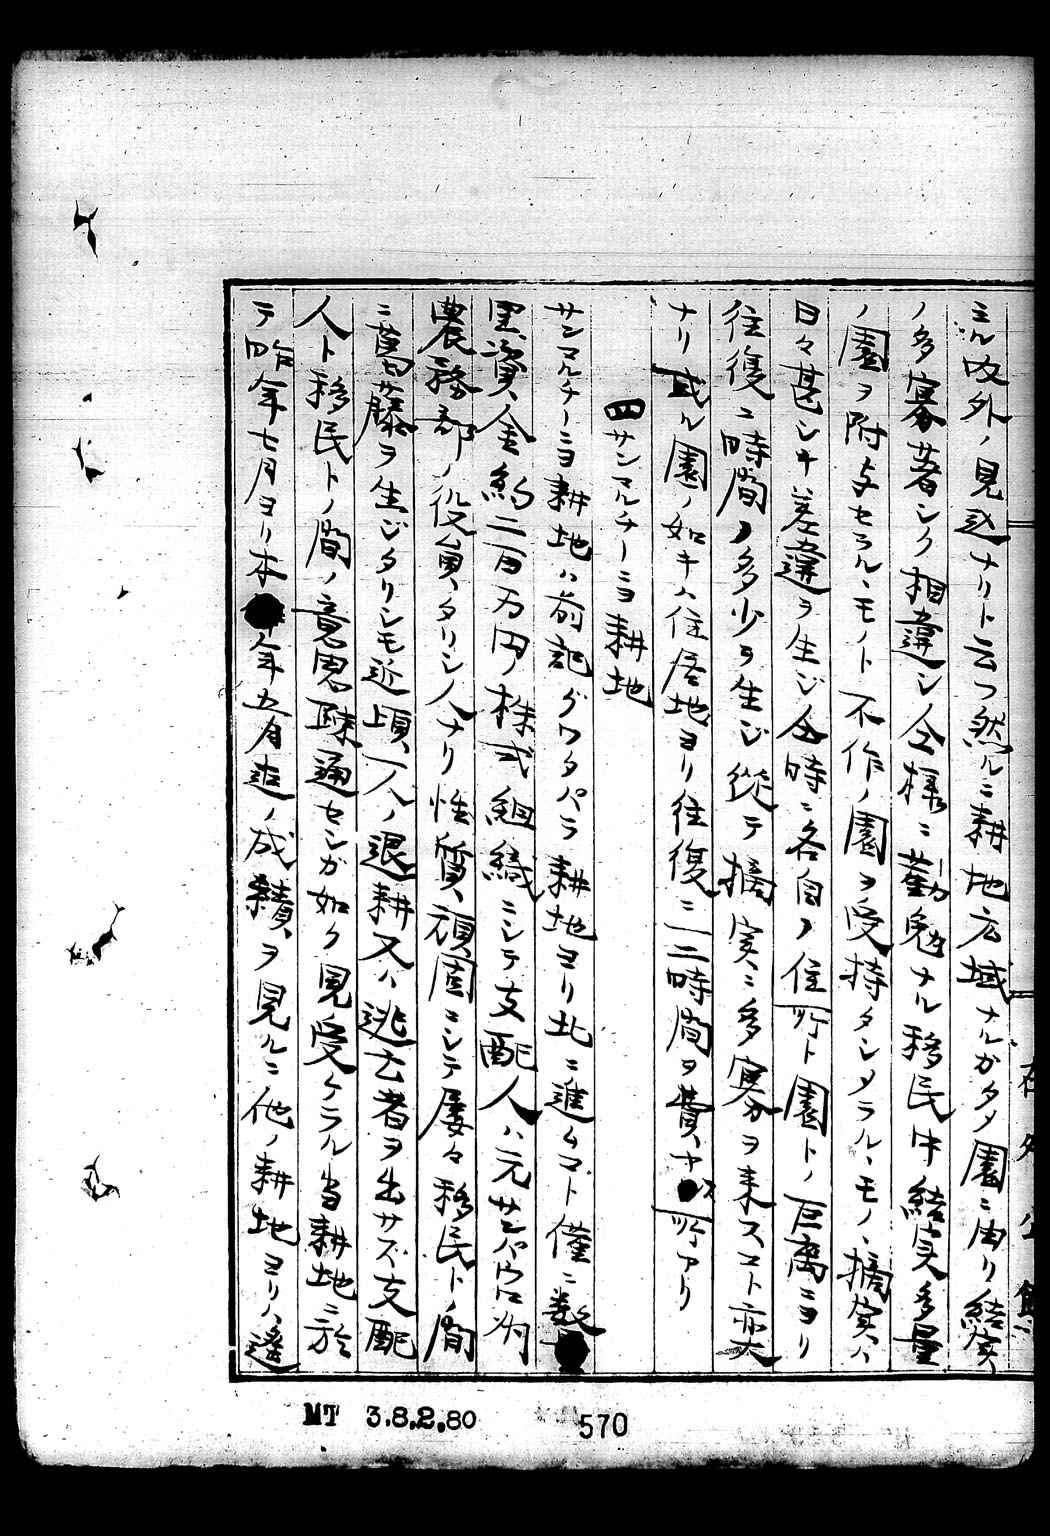 ミル内外ノ見込ナリト云フ然ルニ耕地広域ナルガタメ園ニ由リ結実
ノ多寡著シク相違シ仝様ニ勤勉ナル移民中結実多量
ノ園ヲ附与セラルヽモノト不作ノ園ヲ受持タシメラルヽモノヽ摘実ハ
日々甚シキ差違ヲ生ジ仝時ニ各自ノ住所ト園トノ巨离ニヨリ
往復ニ時間ノ多少ヲ生ジ従テ摘実ニ多寡ヲ来スコト亦大
ナリ或ル園ノ如キハ住居地ヨリ往復ニ二時間ヲ費ス所アリ
四 サンマルチーニヨ耕地
サンマルチーニヨ耕地ハ前記グワタパラ耕地ヨリ北ニ進ムコト僅ニ数
里資金約二百万円ノ株式組織ニシテ支配人ハ元サンパウロ州
農務部ノ役員タリシ人ナリ性質頑固ニシテ屡々移民トノ間
ニ葛藤ヲ生ジタリシモ近頃一人ノ退耕又ハ逃亡者ヲ出サズ支配
人ト移民トノ間ノ意思疎通セシガ如ク見受ケラル当耕地ニ於
テ昨年七月ヨリ本年五月迄ノ成績ヲ見ルニ他ノ耕地ヨリハ遙
在外公館
MT 3.8.2.80
570